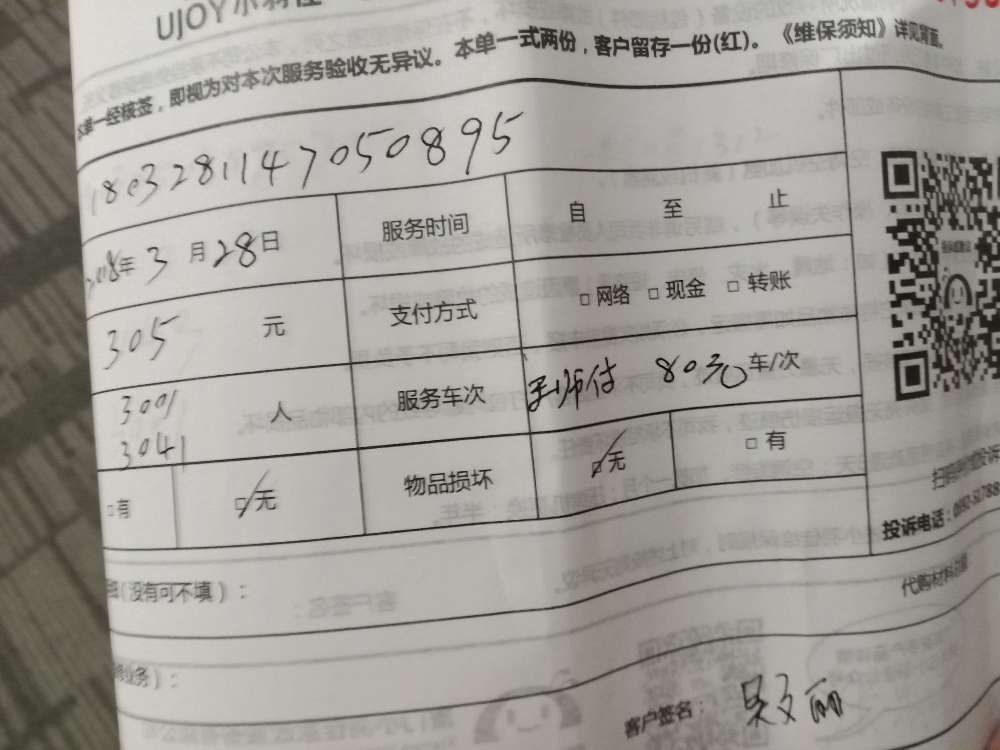 UJOY小羽佳
本单一经核签，即视为对本次服务验收无异议。本单一式两份，客户留存一份(红)。《维保须知》详见背面。
1803281147050895
2018年3月28日 服务时间 自 至 止
305 元 支付方式 □网络 □现金 □转账
3001 人 服务车次 付 80元 车/次
3041
□有 □无 物品损坏 □无 □有
(没有可不填)：
业务)：
投诉电话：
代购材料
客户签名： 吴文丽